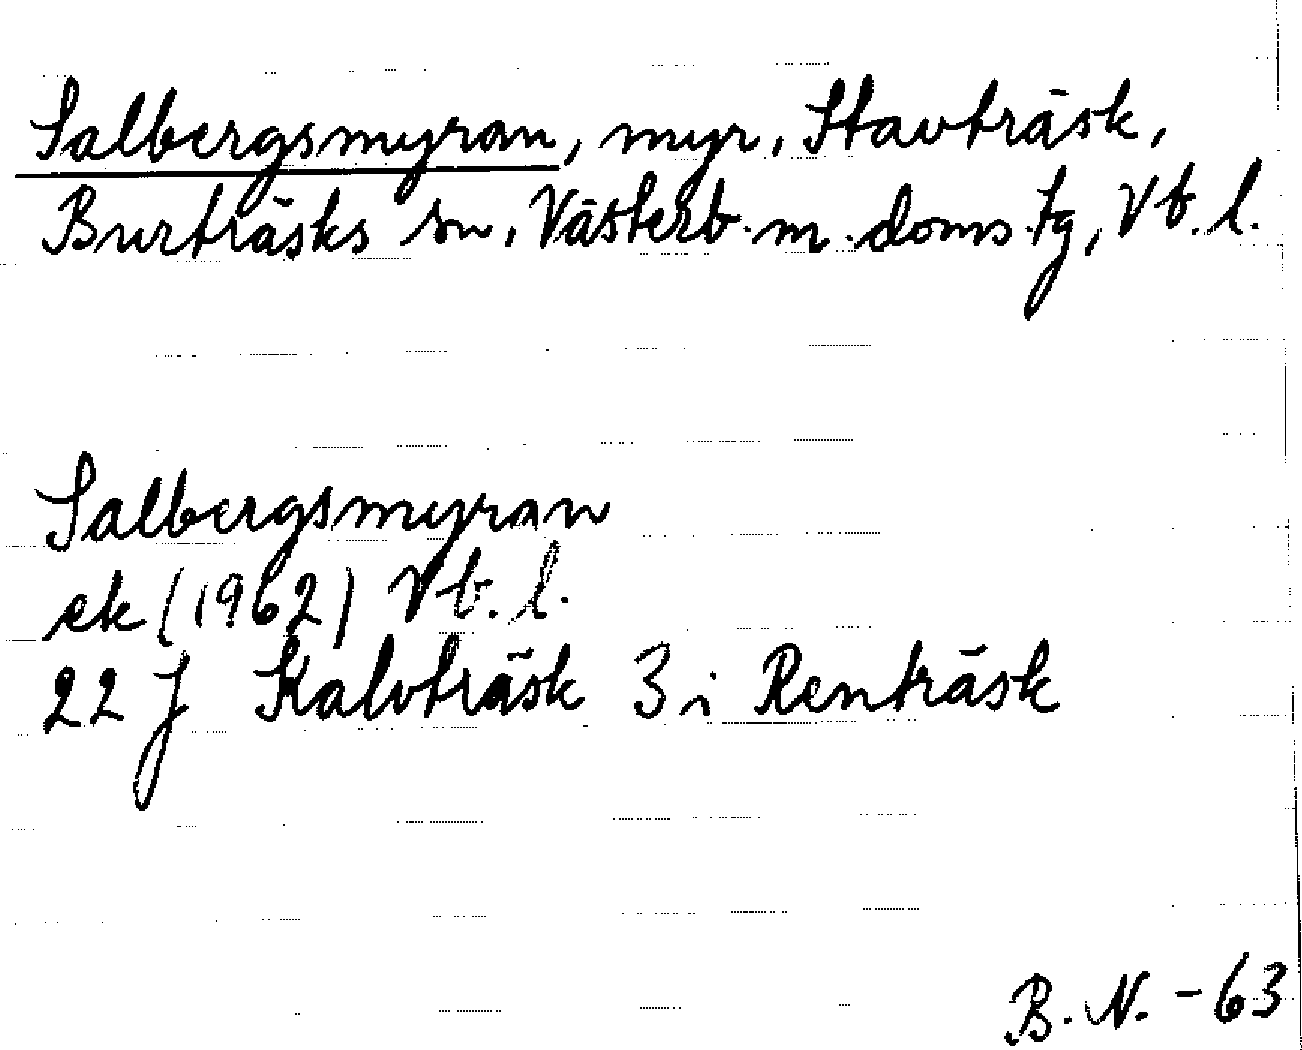 Salbergsmyran, myr, Stavträsk,
Burträsks sn, Västerb. m. doms. tg, Vb. l.
Salbergsmyran
ek (1962) Vb. l.
22 J Kalvträsk 3 i Renträsk
B. N. - 63